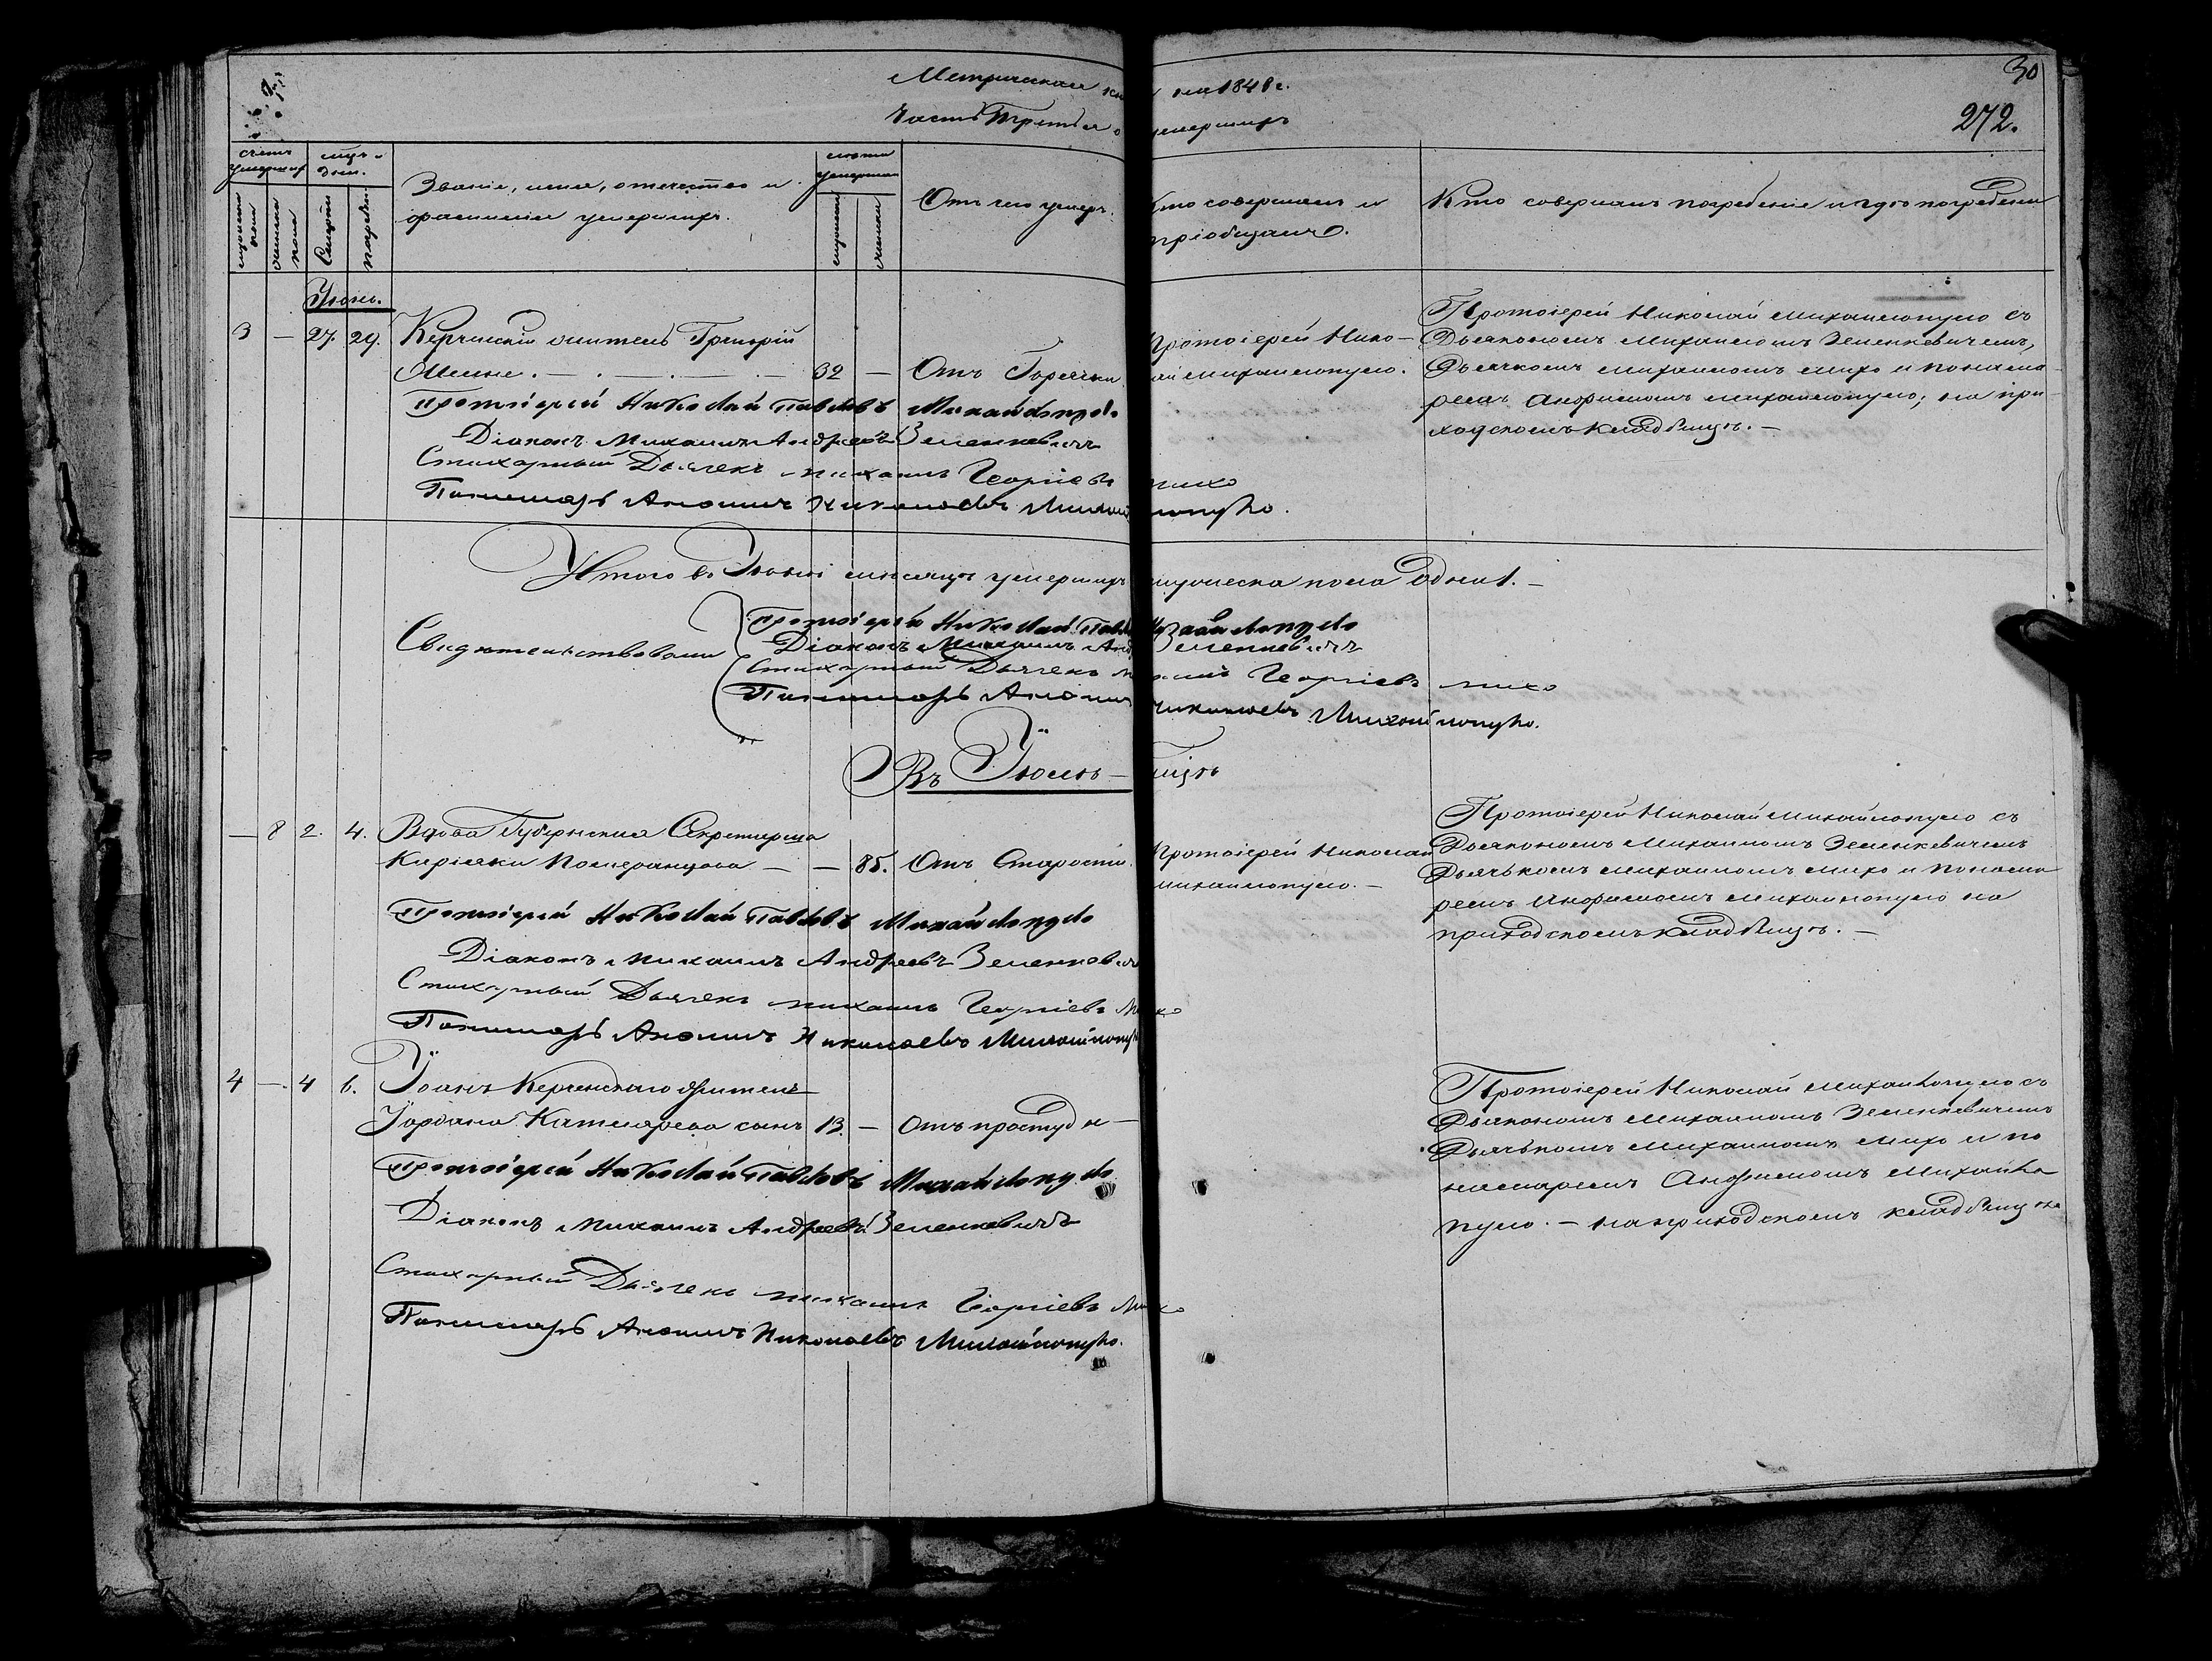 30
Метрическая на 1848 г.
Часть Третья о умершихъ
272.
счетъ умершихъ
мужеска пола
женска пола
Смерти
погребен.
Званіе, имя, отечество и фамилія умершихъ.
лета умершаго
мужеска
женска
Отъ чего умеръ.
Кто совершалъ и
пріобщалъ.
Кто совершалъ погребеніе и гдѣ погребены
Іюнь.
3 — 27. 29. Керченскій житель Григорій
— 32 — Отъ Горячки
Протоіерей Нико-
лай Михайлопуло.
Протоіерей Николай Михайлопуло съ
Дьякономъ Михаиломъ Зеленкевичемъ,
Дьячкомъ Михаиломъ Михо и понома-
ремъ Анфимомъ Михайлопуло; на при-
ходскомъ кладбищѣ. —
Протоіерей Николай Павловъ Михайлопуло
Діаконъ Михаилъ Андреевъ Зеленкевичъ
Стихарный Дьячекъ Михаилъ Георгіевъ Михо
Пономарь Анфимъ Николаевъ Михайлопуло.
Итого въ Іюнѣ мѣсяцѣ умершихъ мужеска пола одинъ 1. —
Свидетельствовали
Протоіерей Николай Михайлопуло
Діаконъ Михаилъ Зеленкевичъ
Стихарный Дьячекъ Георгіевъ Михо
Пономарь Анфимъ Николаевъ Михайлопуло.
Въ Іюлѣ — мцѣ
— 8 2. 4. Вдова Губернская Секретарша
— — 85. Отъ Старости
Протоіерей Николай
Михайлопуло. —
Протоіерей Николай Михайлопуло съ
Дьякономъ Михаиломъ Зеленкевичемъ
Дьячькомъ Михаиломъ Михо и понома
ремъ Анфимомъ Михайлопуло на
приходскомъ кладбищѣ. —
Протоіерей Николай Павловъ Михайлопуло
Діаконъ Михаилъ Андреевъ Зеленкевичъ
Стихарный Дьячекъ Михаилъ Георгіевъ Михо
Пономарь Анфимъ Николаевъ Михайлопуло
4 — 4 6. Іоанъ Керченскаго жителя
сынъ 13. — Отъ простуды —
Протоіерей Николай Михайлопуло съ
Дьякономъ Михаиломъ Зеленкевичемъ
Дьячькомъ Михаиломъ Михо и по
номаремъ Анфимомъ Михайло
пуло. — на приходскомъ кладбищѣ
Протоіерей Николай Павловъ Михайлопуло
Діаконъ Михаилъ Андреевъ Зеленкевичъ
Стихарный Дьячекъ Михаилъ Георгіевъ Михо
Пономарь Анфимъ Николаевъ Михайлопуло.